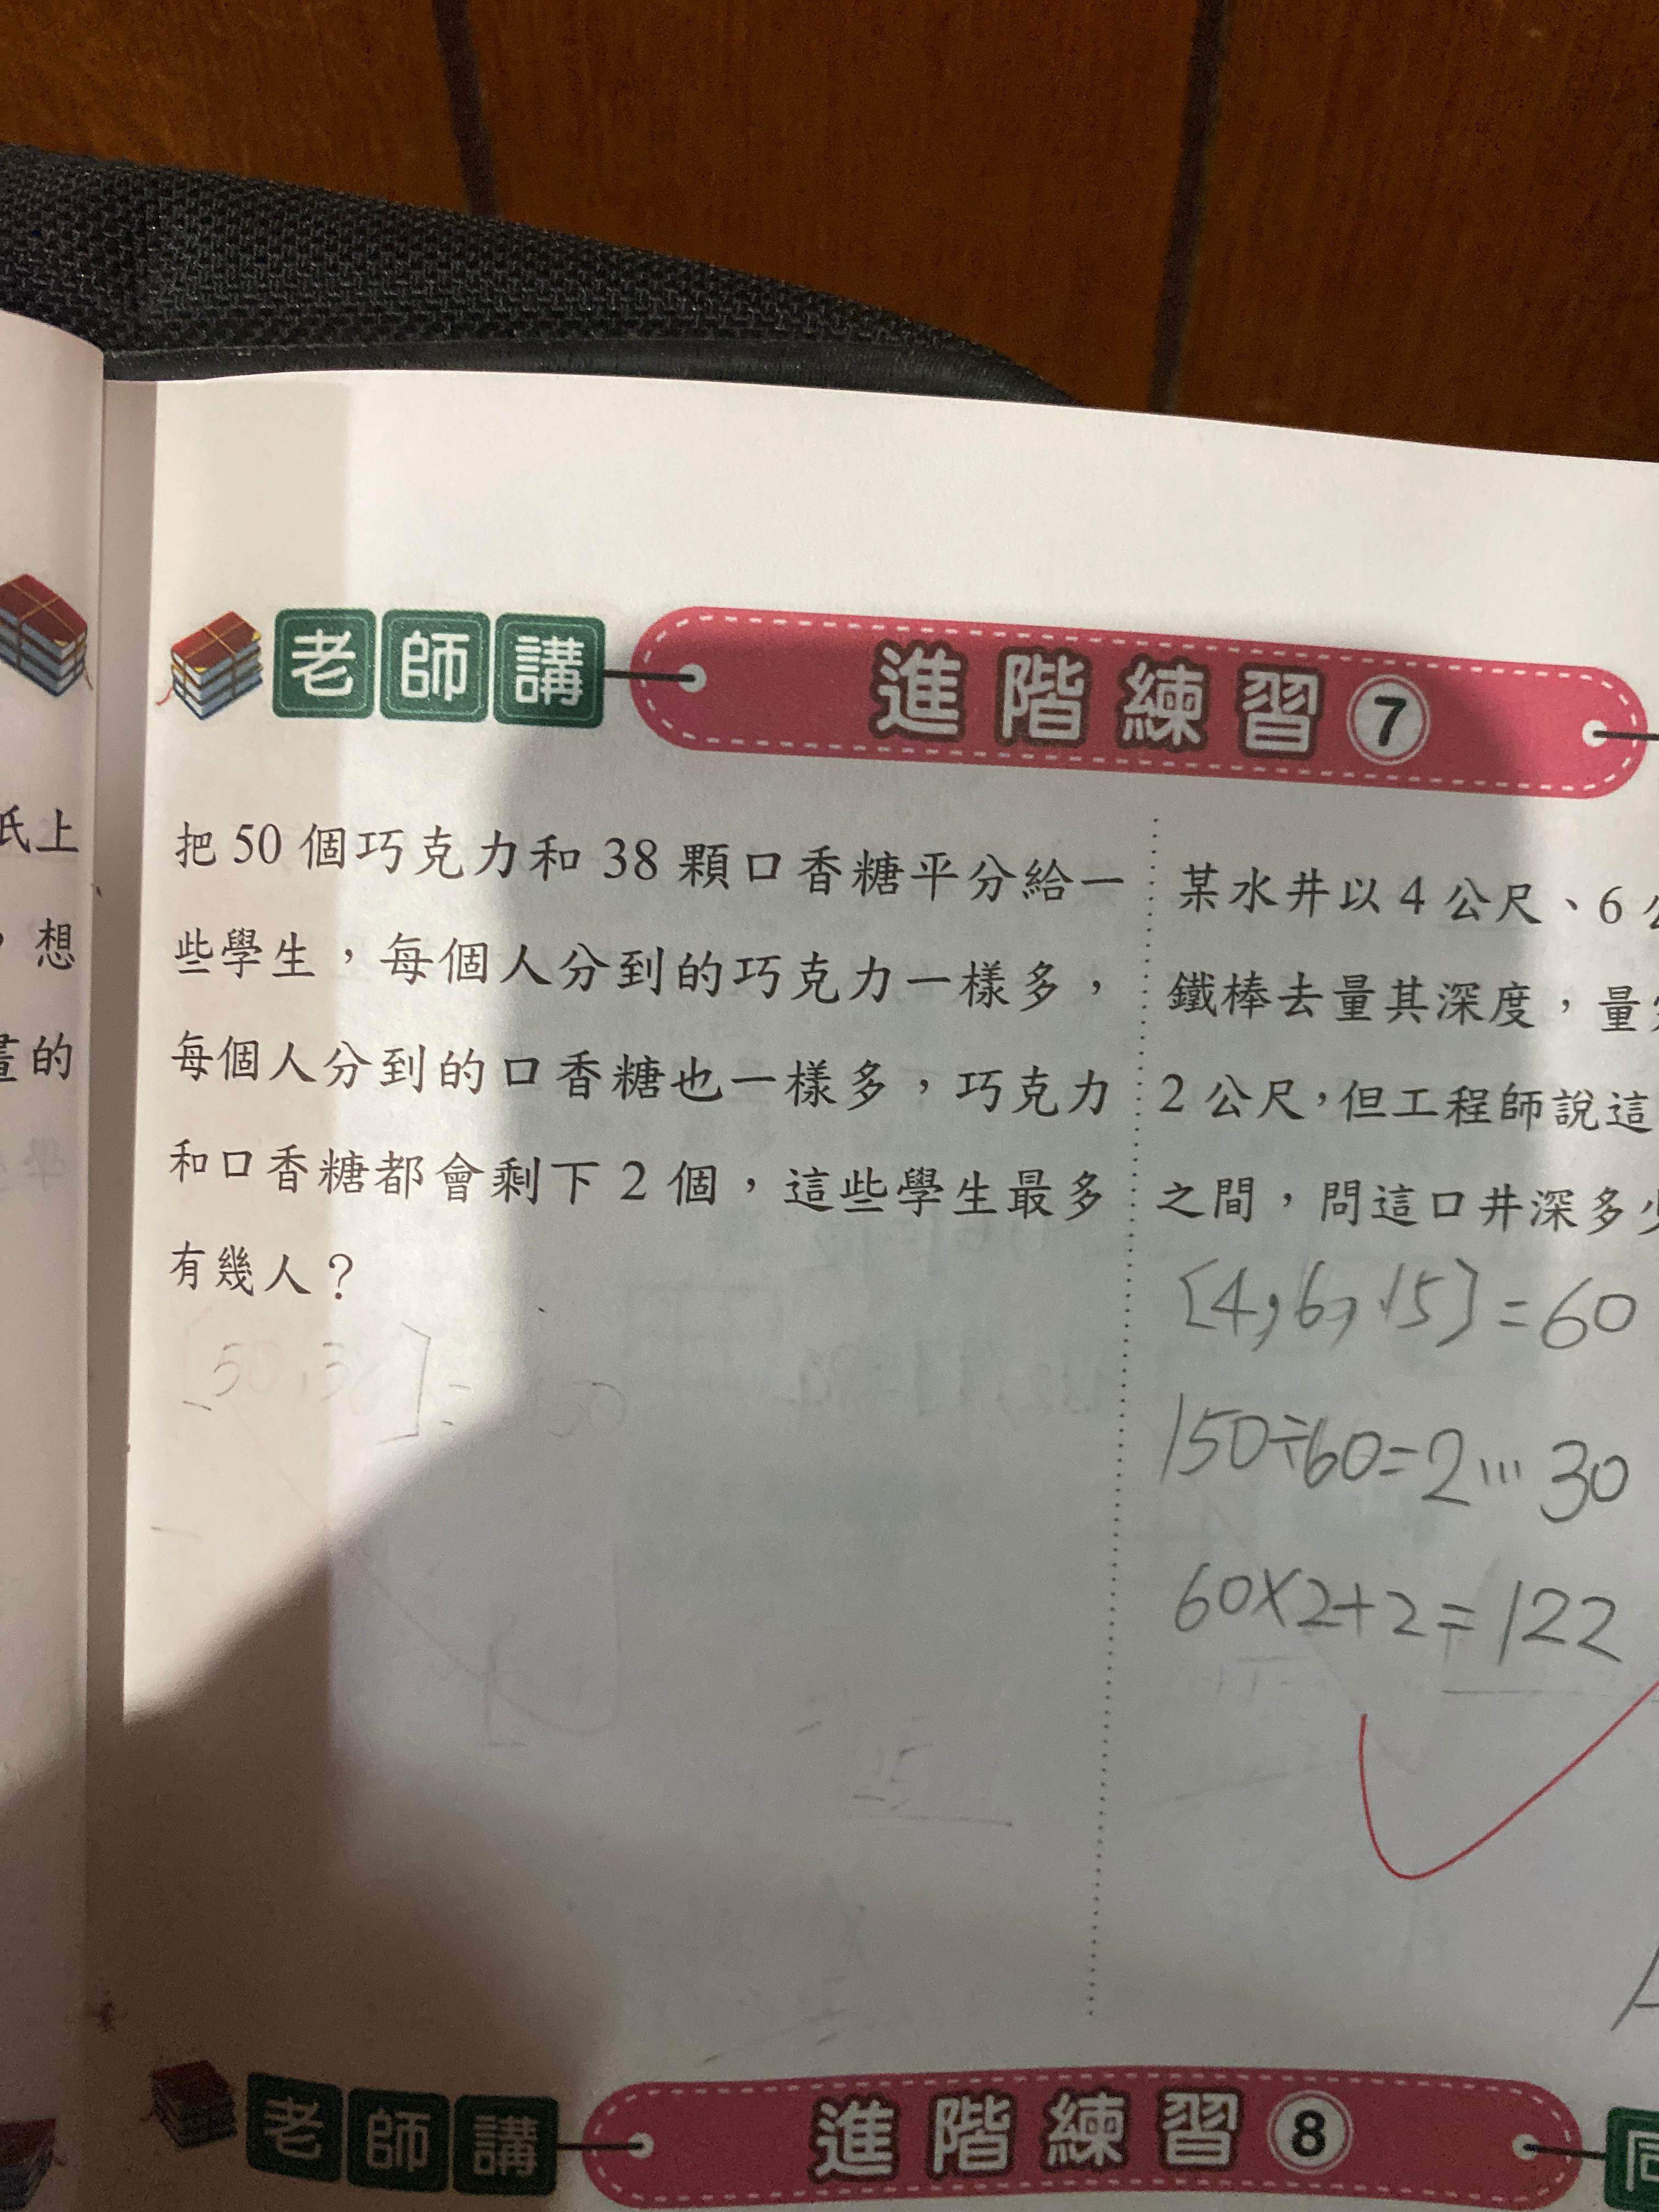 老師講 進階練習 7
把 50 個巧克力和 38 顆口香糖平分給一
些學生，每個人分到的巧克力一樣多，
每個人分到的口香糖也一樣多，巧克力
和口香糖都會剩下 2 個，這些學生最多
有幾人？
[50,38]=
25
某水井以 4 公尺、6
鐵棒去量其深度，量
2 公尺，但工程師說這
之間，問這口井深多
[4,6,15]=60
150÷60=2…30
60×2+2=122
A
紙上
，想
畫的
老師講 進階練習 8